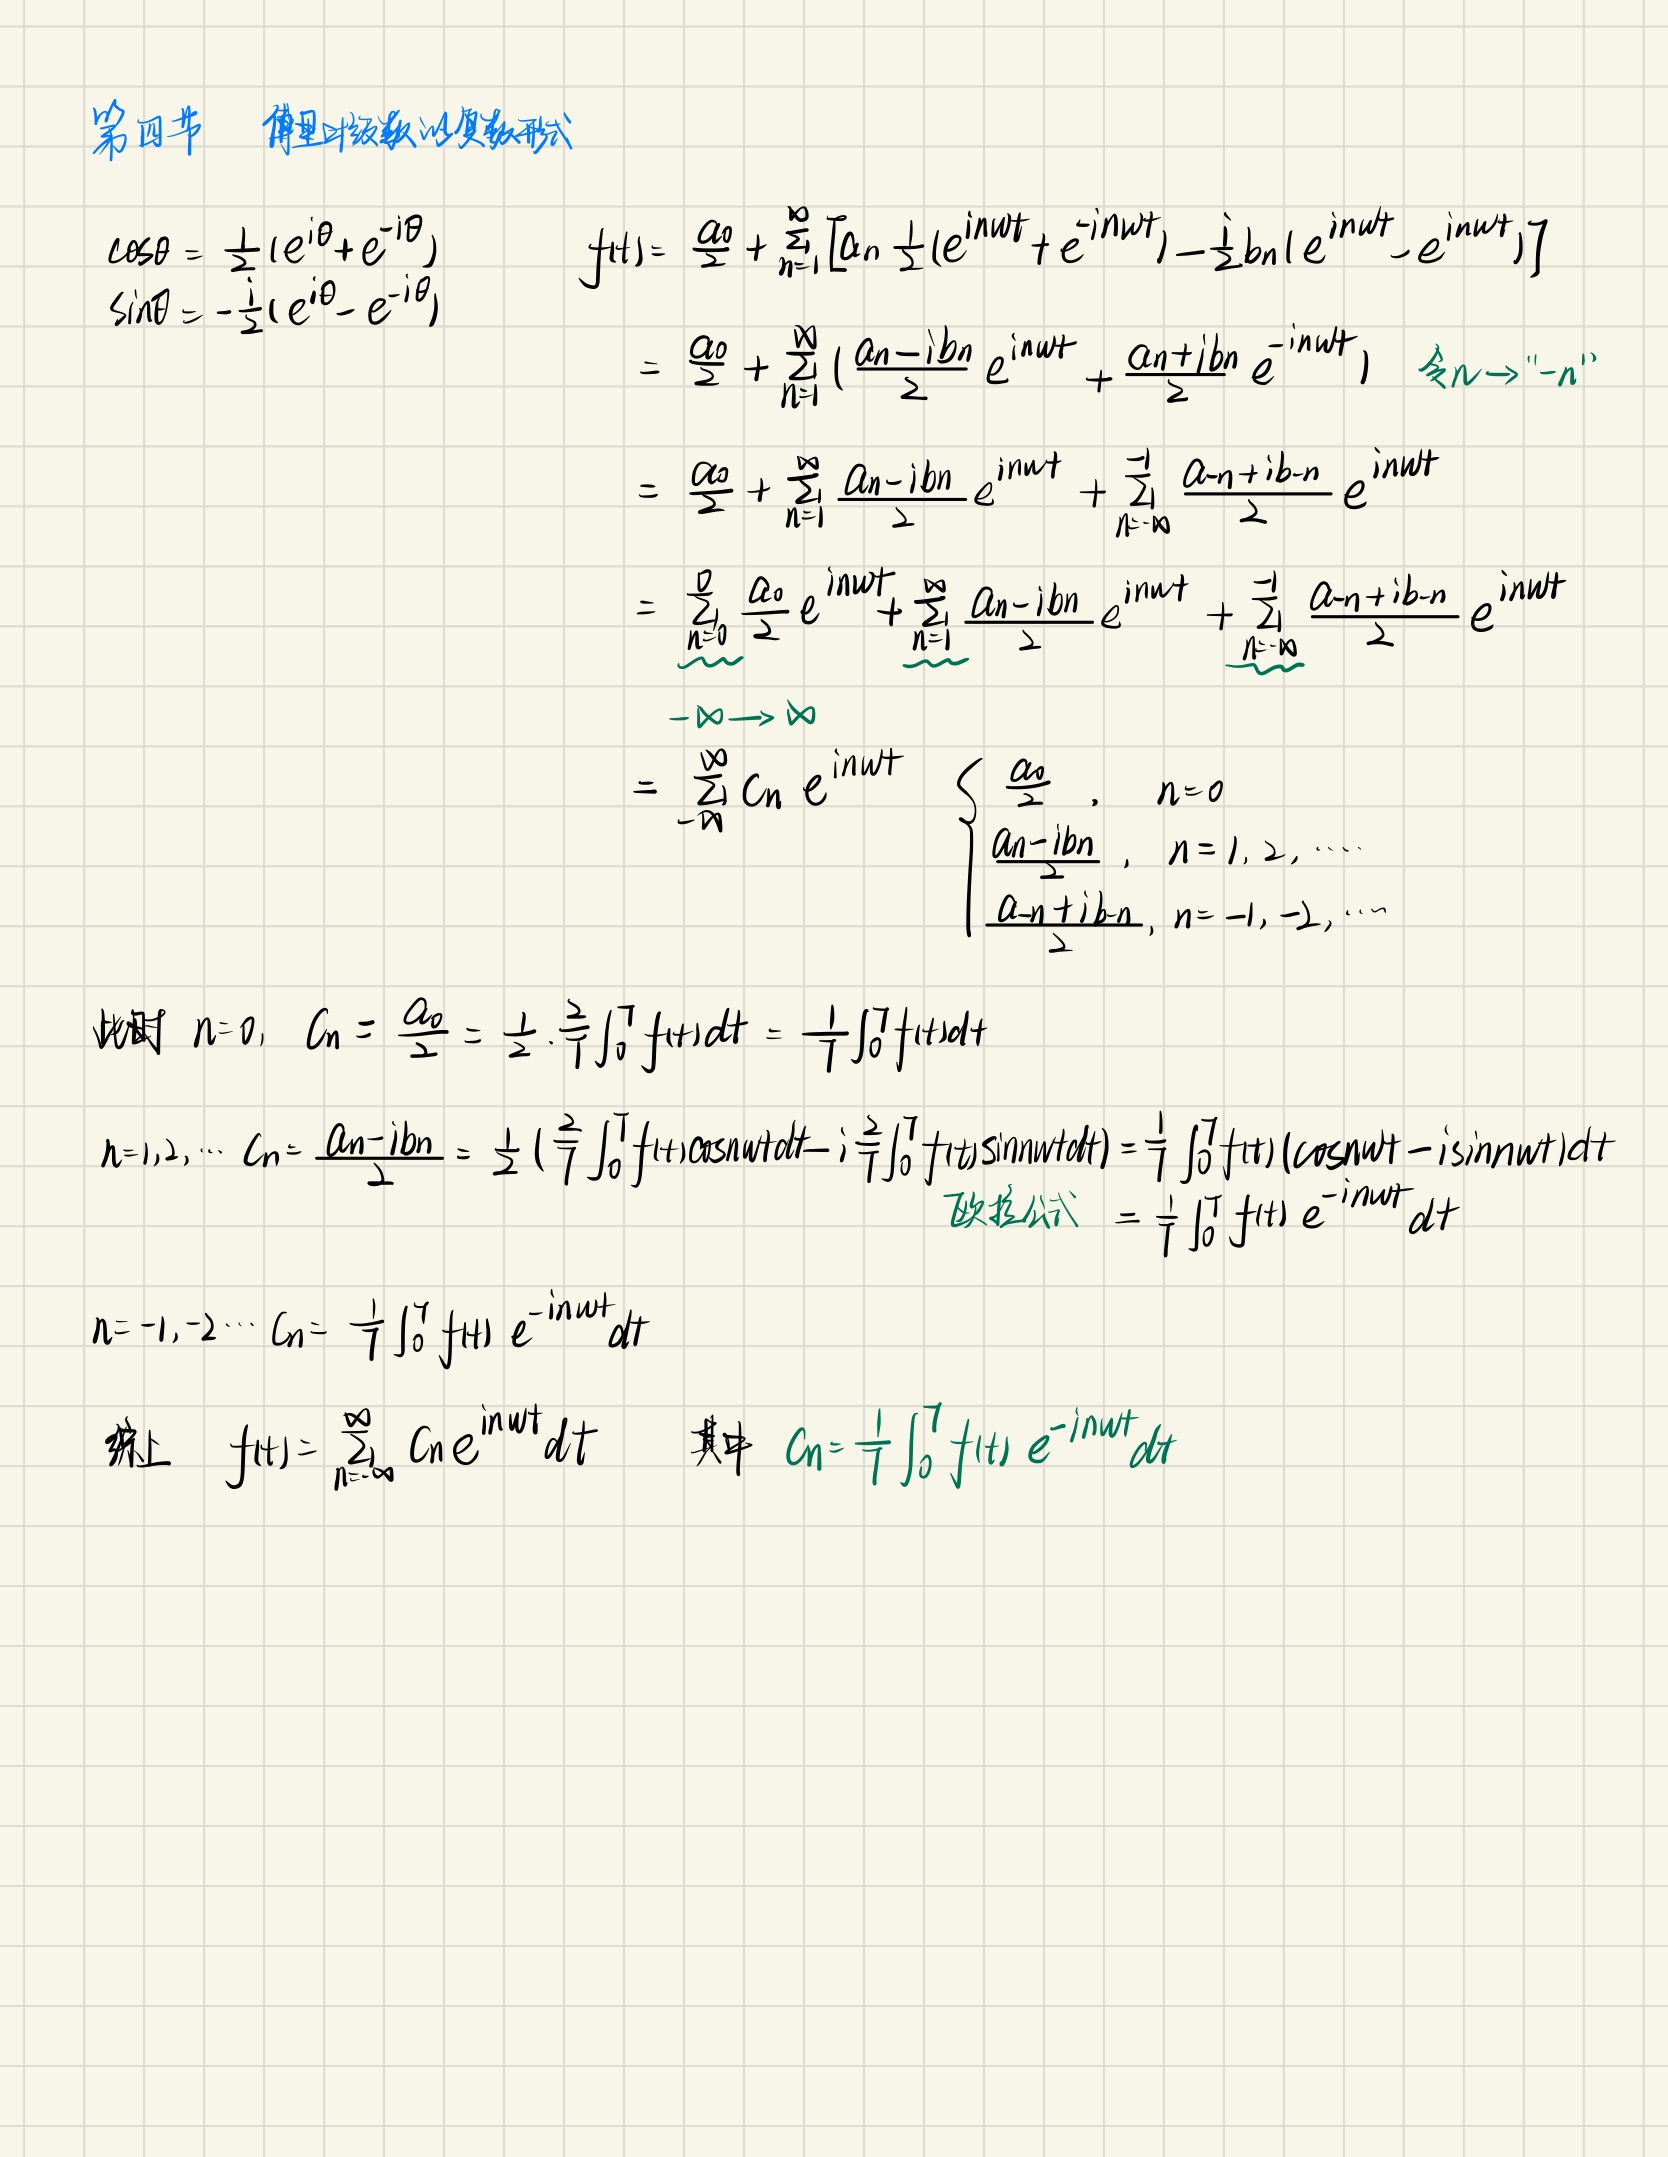 第四节 傅里叶级数以复数形式
cosθ = 1/2 (e^{iθ} + e^{-iθ})
sinθ = -i/2 (e^{iθ} - e^{-iθ})
f(t) = a_0/2 + ∑_{n=1}^{∞} [a_n 1/2 (e^{inωt} + e^{-inωt}) - i/2 b_n (e^{inωt} - e^{inωt})]
= a_0/2 + ∑_{n=1}^{∞} ( (a_n - ib_n)/2 e^{inωt} + (a_n + ib_n)/2 e^{-inωt} ) 令n→"-n"
= a_0/2 + ∑_{n=1}^{∞} (a_n - ib_n)/2 e^{inωt} + ∑_{n=-∞}^{-1} (a_{-n} + ib_{-n})/2 e^{inωt}
= ∑_{n=0}^{0} a_0/2 e^{inωt} + ∑_{n=1}^{∞} (a_n - ib_n)/2 e^{inωt} + ∑_{n=-∞}^{-1} (a_{-n} + ib_{-n})/2 e^{inωt}
-∞→∞
= ∑_{-∞}^{∞} C_n e^{inωt} { a_0/2 , n=0
(a_n - ib_n)/2 , n = 1, 2, ·····
(a_{-n} + ib_{-n})/2 , n = -1, -2, ····
此时 n=0, C_n = a_0/2 = 1/2 · 2/T ∫_0^T f(t)dt = 1/T ∫_0^T f(t)dt
n=1,2,··· C_n = (a_n - ib_n)/2 = 1/2 ( 2/T ∫_0^T f(t)cosnωtdt - i 2/T ∫_0^T f(t)sinnωtdt) = 1/T ∫_0^T f(t)(cosnωt - isinnωt)dt
欧拉公式 = 1/T ∫_0^T f(t) e^{-inωt} dt
n=-1,-2··· C_n = 1/T ∫_0^T f(t) e^{-inωt} dt
综上 f(t) = ∑_{n=-∞}^{∞} C_n e^{inωt} dt 其中 C_n = 1/T ∫_0^T f(t) e^{-inωt} dt